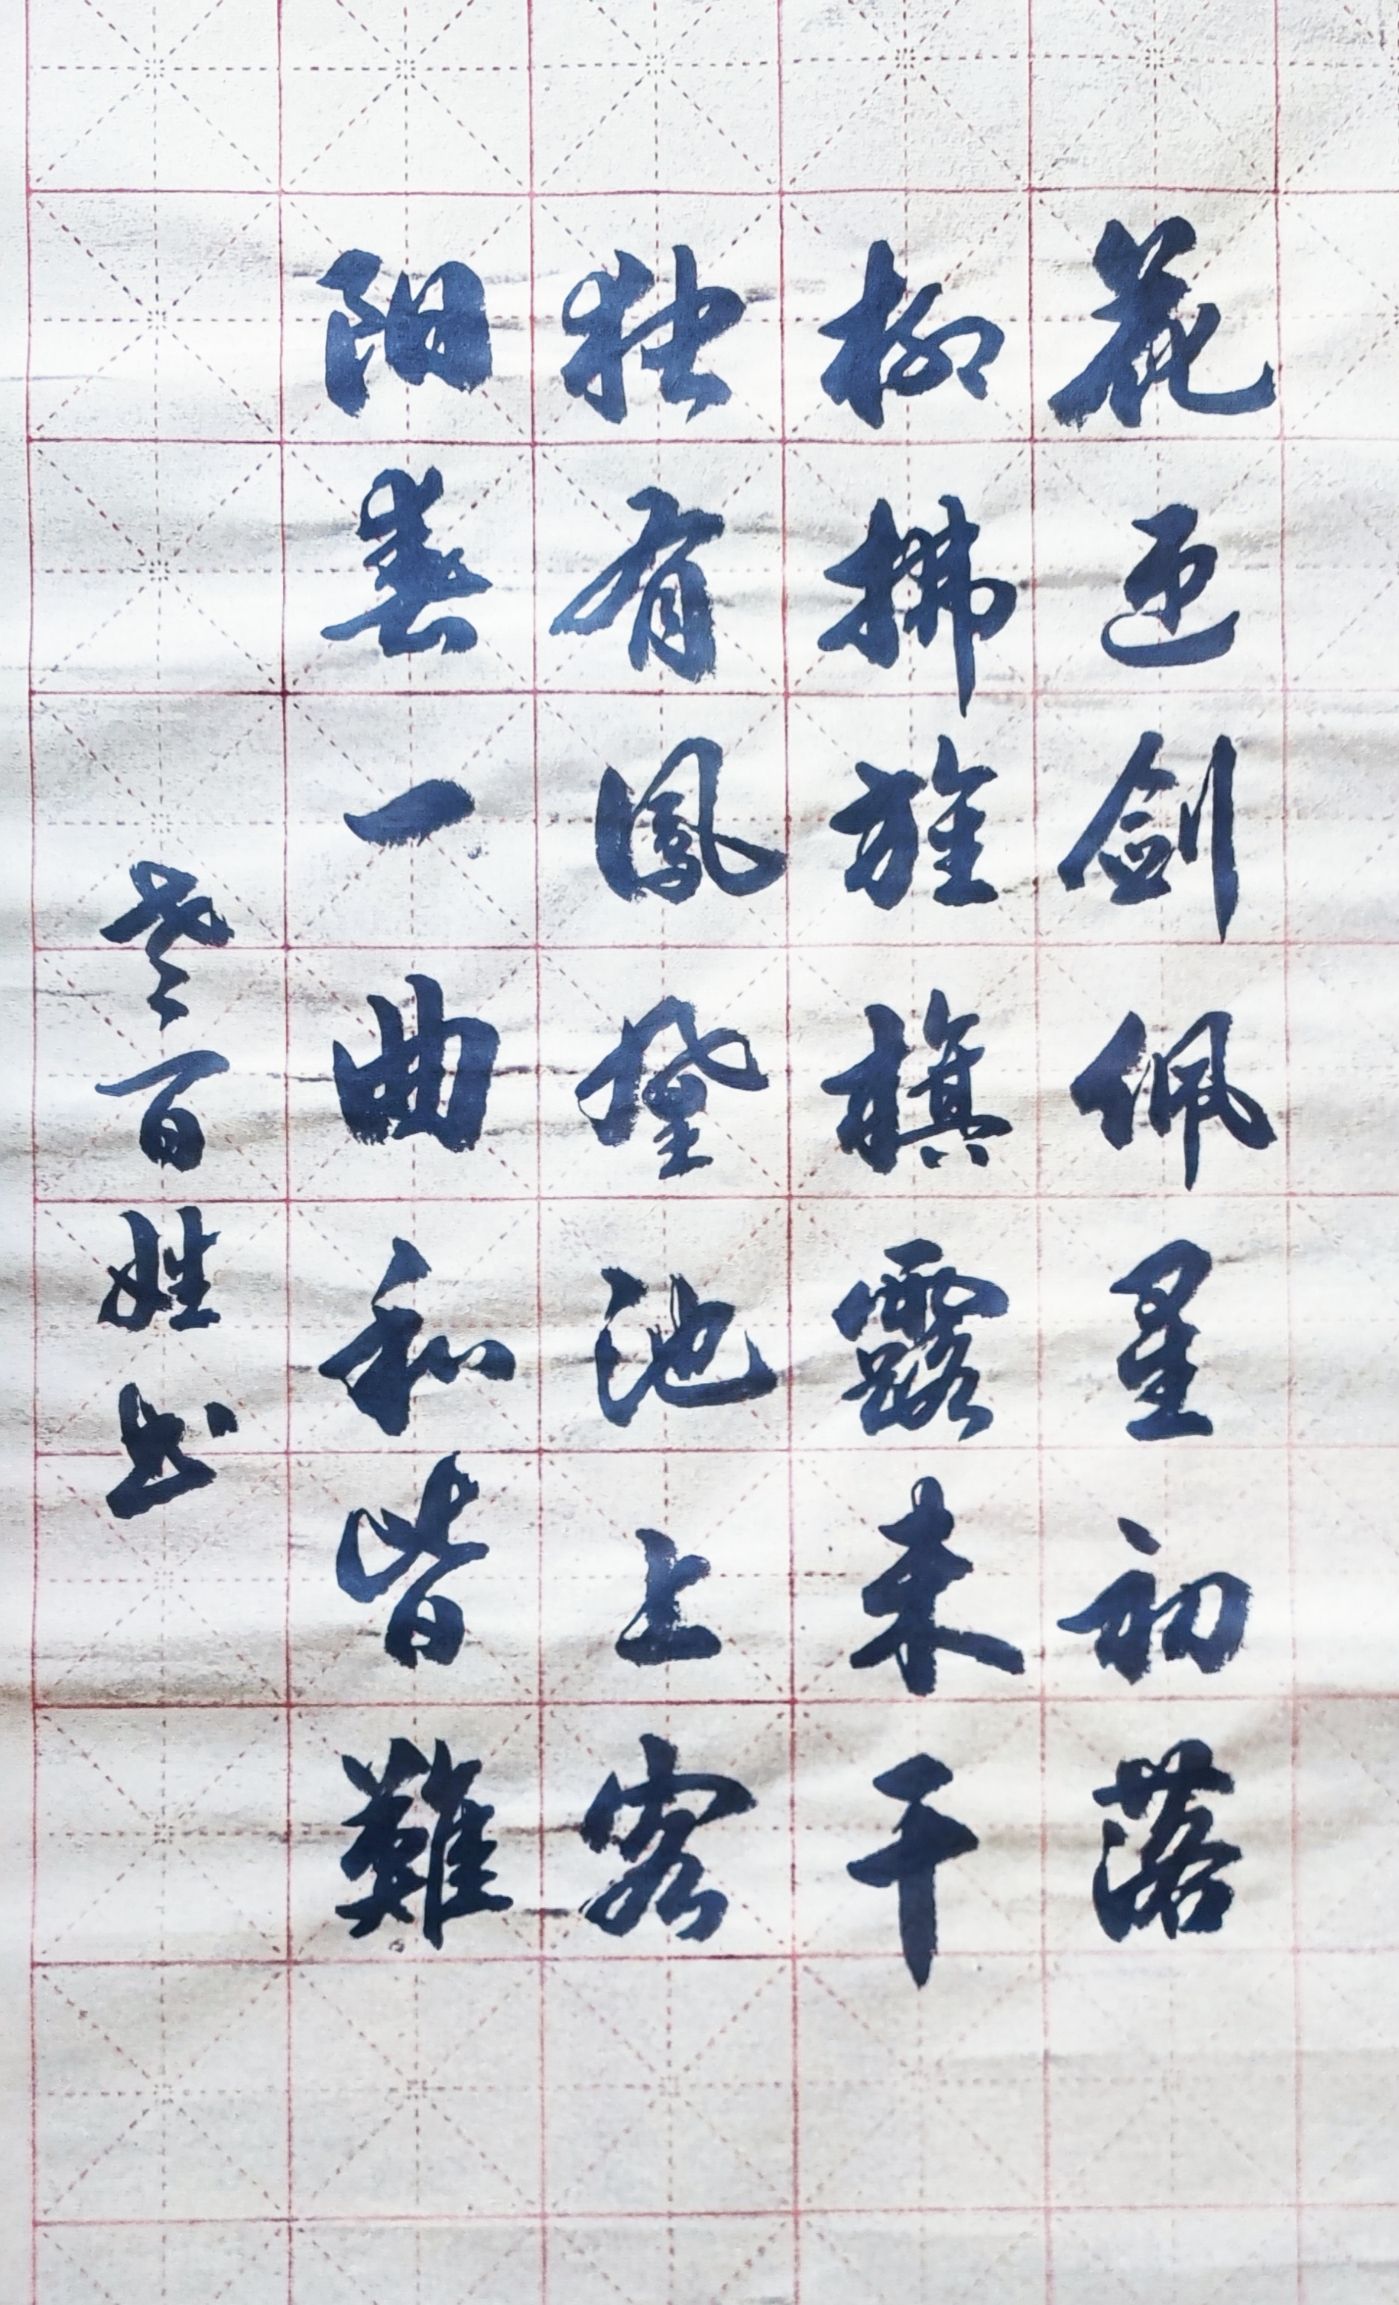 花迎剑佩星初落
柳拂旌旗露未干
独有凤凰池上客
阳春一曲和皆難
老百姓书